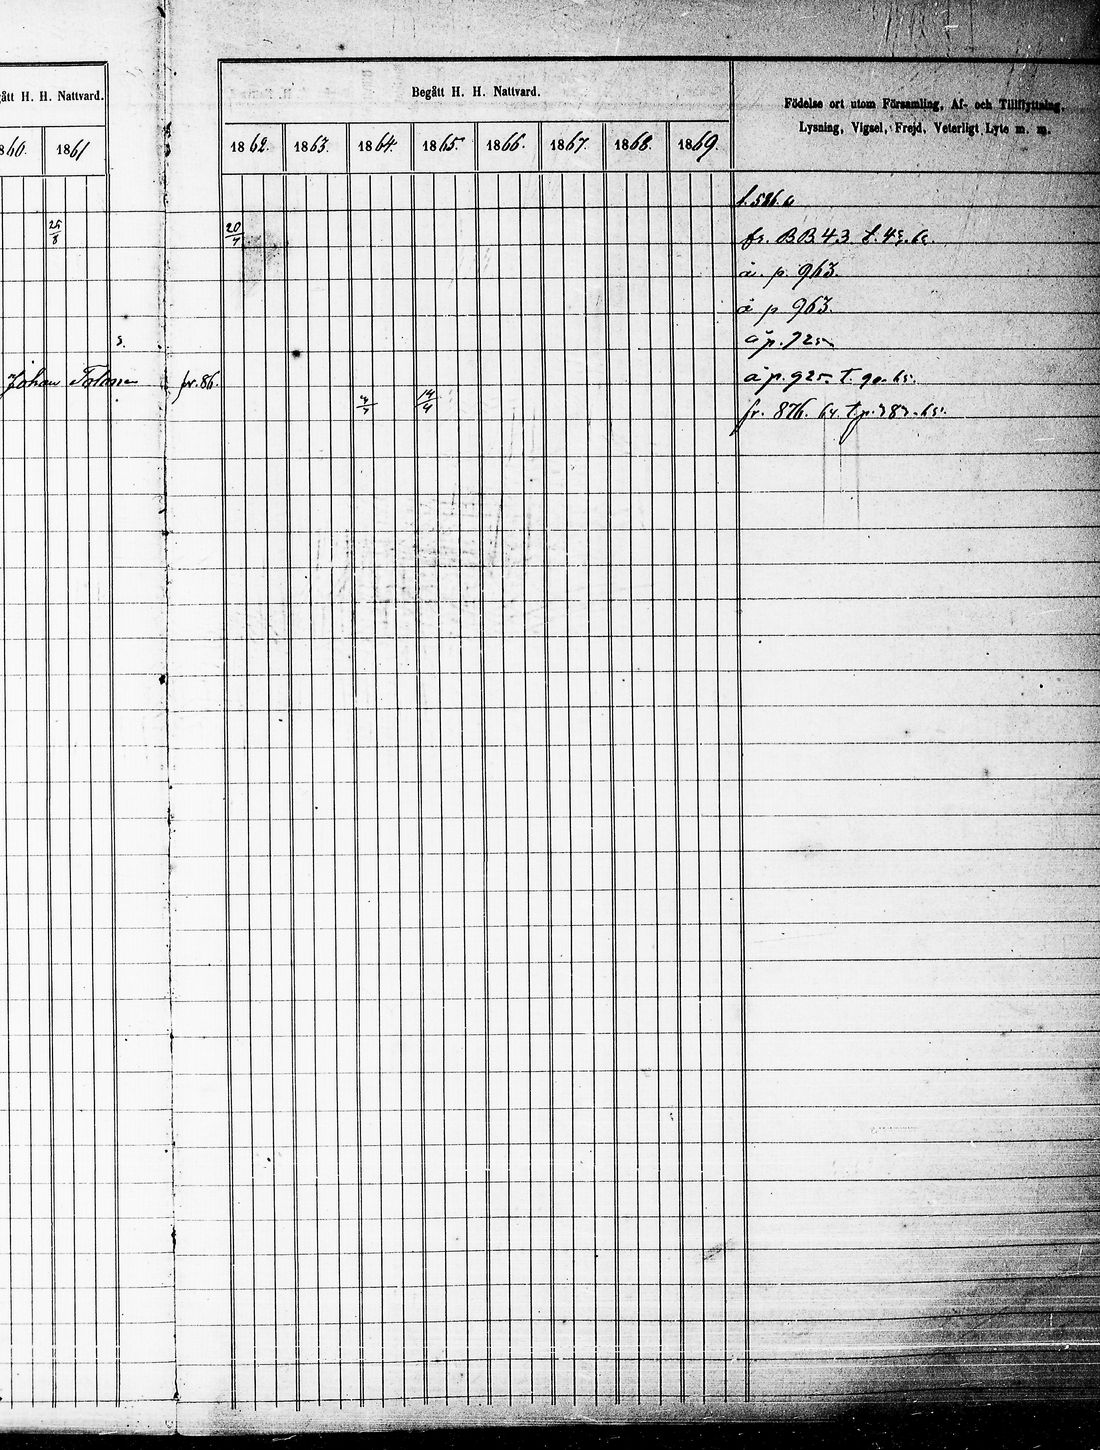 gått H. H. Nattvard.
860. 1861
25/8
Johan
fr. 86.
Begått H. H. Nattvard.
1862. 1863. 1864. 1865. 1866. 1867. 1868. 1869.
Födelse ort utom Församling, Af- och Tillflyttning,
Lysning, Vigsel, Frejd, Veterligt Lyte m. m.
20/7
fr. BB 43
å. p. 963.
å p 963.
å p. 925
å p. 925. t. 90. 65.
14/4
fr. 876. 64. t. p.